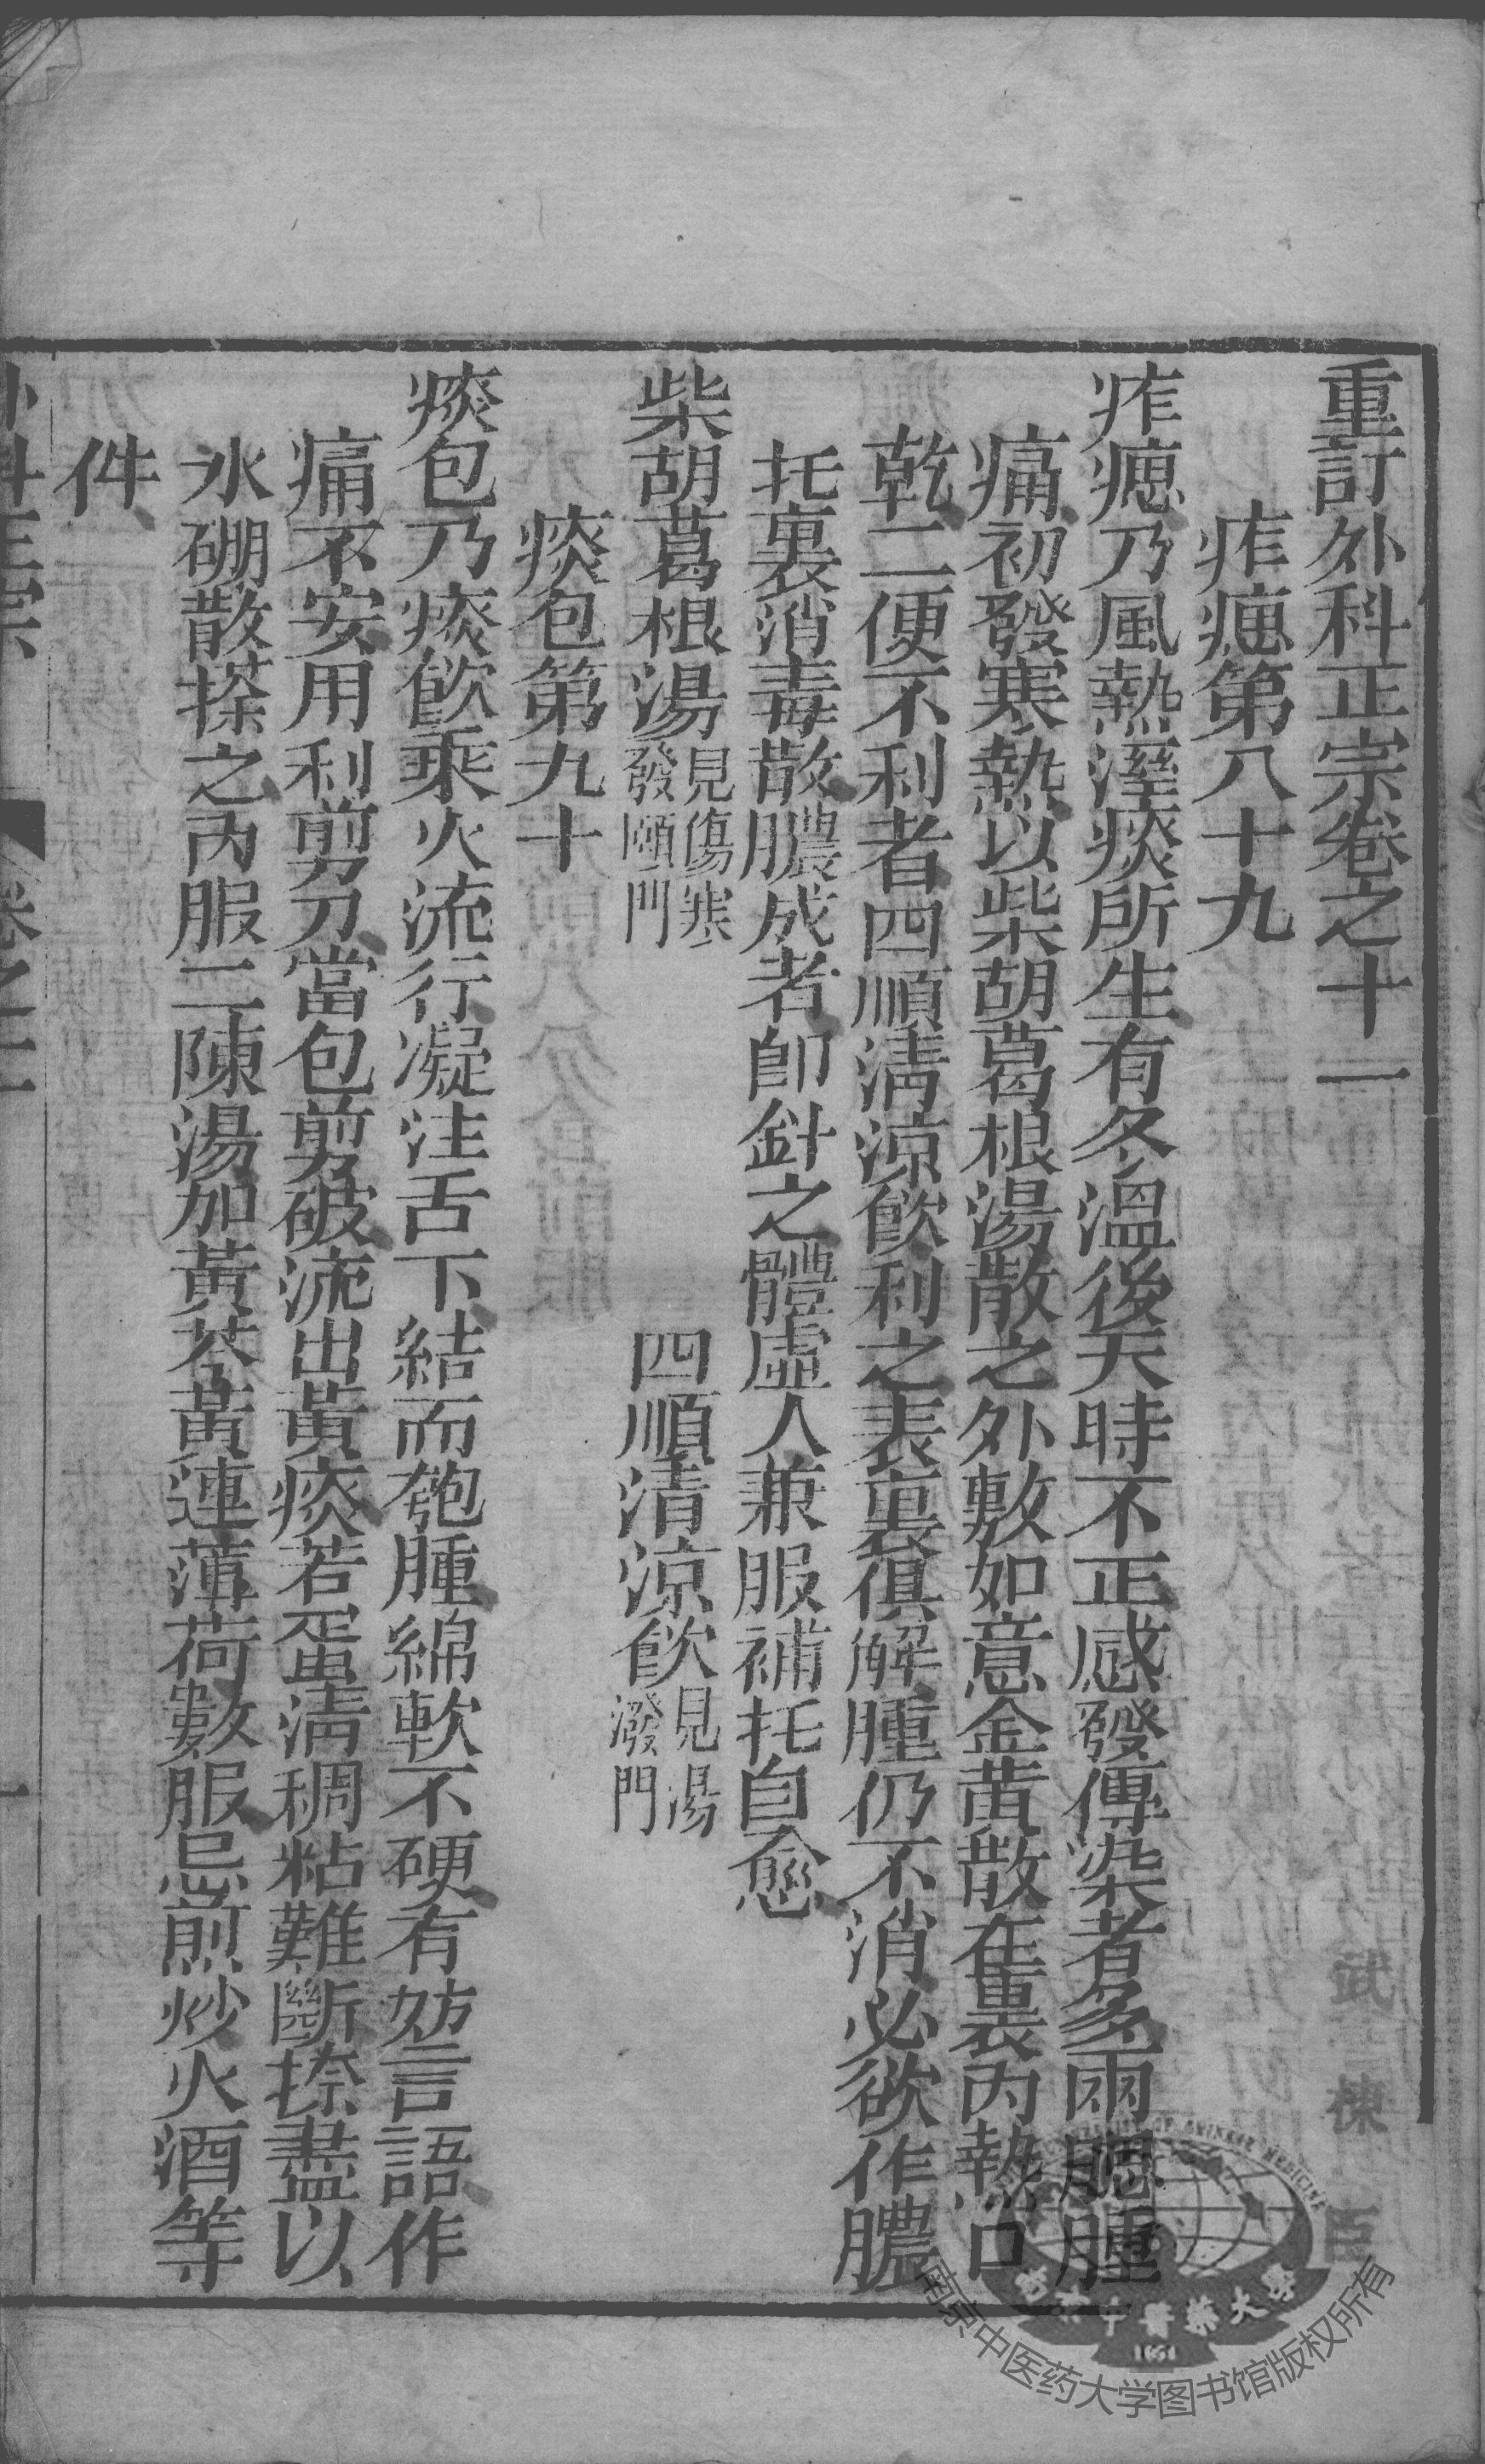 重訂外科正宗卷之十一
痄瘜第八十九
痄瘜乃風熱溼痰所生有冬溫後天時不正感發傳染者多兩腮腫
痛初發寒熱以柴胡葛根湯散之外敷如意金黃散在裏內熱口
乾二便不利者四順清涼飲利之表裏俱解腫仍不消必欲作膿
托裏消毒散膿成者卽針之體虛人兼服補托自愈
柴胡葛根湯見傷寒發頤門 四順清涼飲見湯潑門
痰包第九十
痰包乃痰飲乘火流行凝注舌下結而匏腫綿軟不硬有妨言語作
痛不安用利剪刀當包剪破流出黃痰若蛋清稠粘難斷捺盡以
冰硼散搽之內服二陳湯加黃芩黃連薄荷數服忌煎炒火酒等
件
武棟臣
卷之十一
一
南京中医药大学
1954
南京中医药大学图书馆版权所有